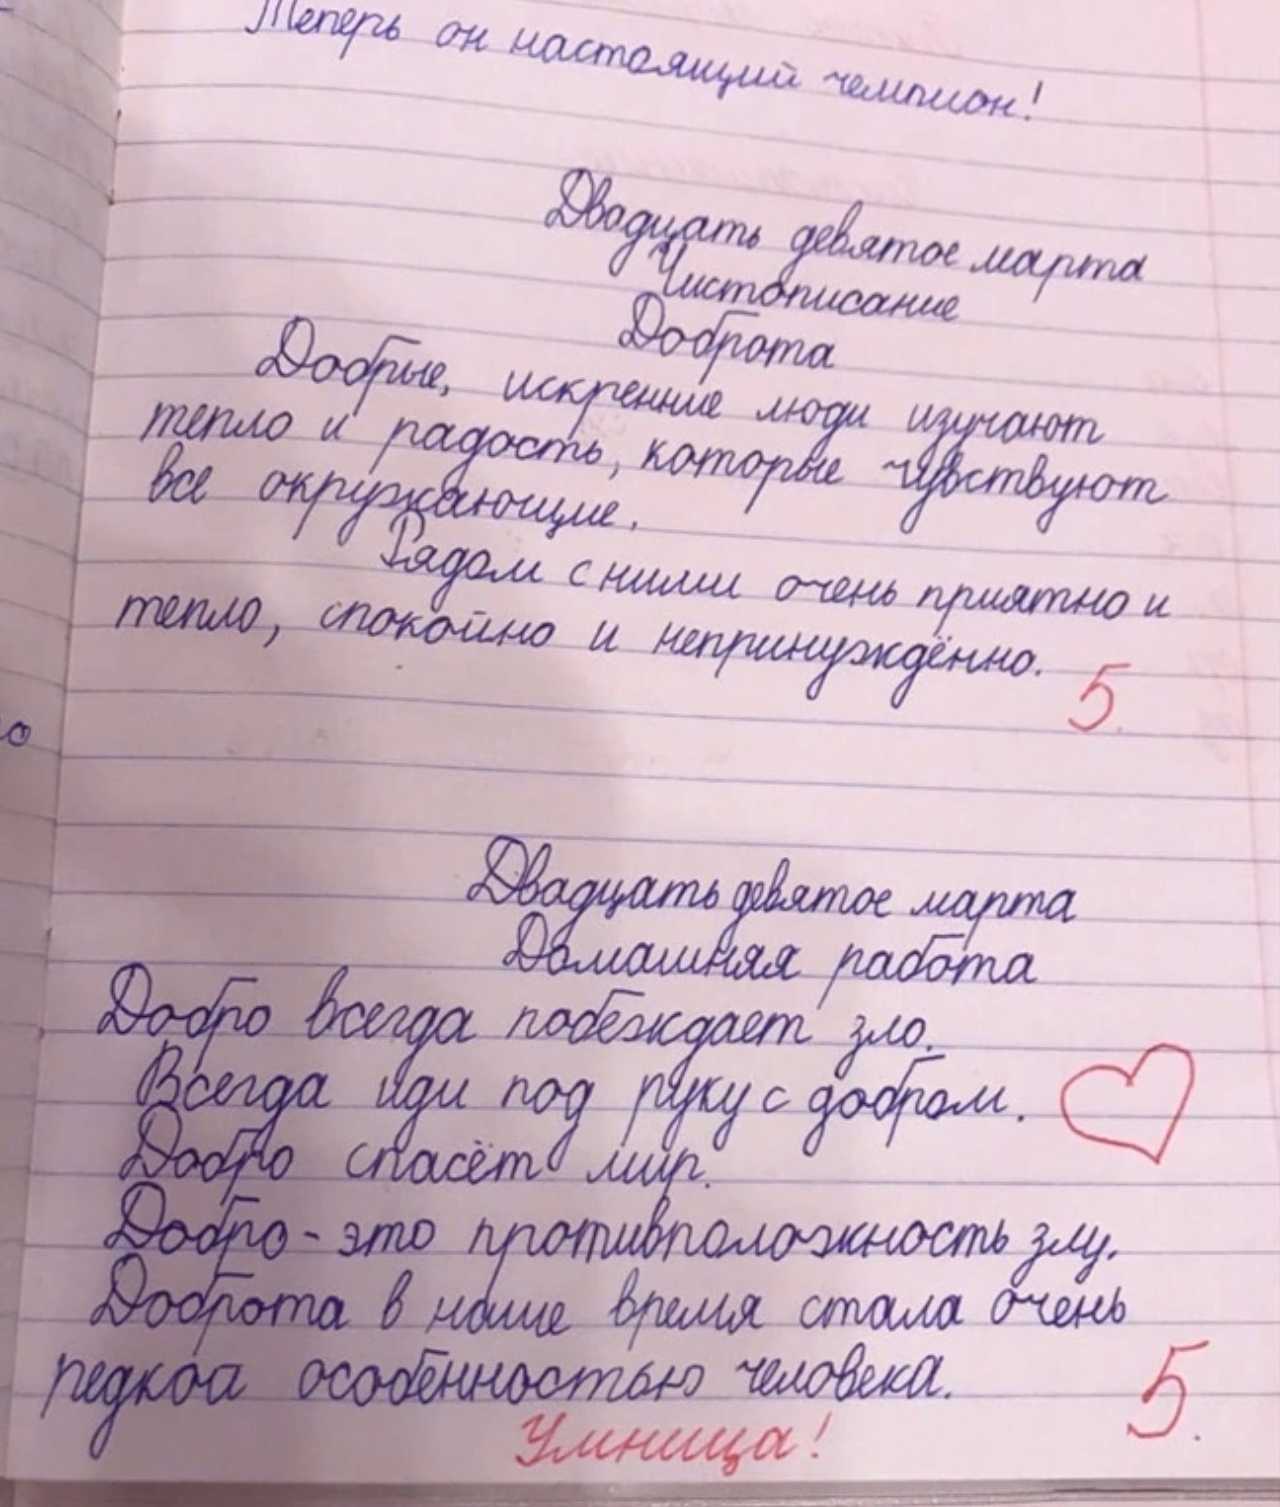 Теперь он настоящий чемпион!
Двадцать девятое марта
Чистописание
Доброта
Добрые, искренние люди изучают
тепло и радость, которые чувствуют
все окружающие.
Рядом с ними очень приятно и
тепло, спокойно и непринуждённо.
5.
о
Двадцать девятое марта
Домашняя работа
Добро всегда побеждает зло.
Всегда иди под руку с добром.
Добро спасёт мир.
Добро - это противположность злу.
Доброта в наше время стала очень
редкоа особенностью человека.
5.
Умница!